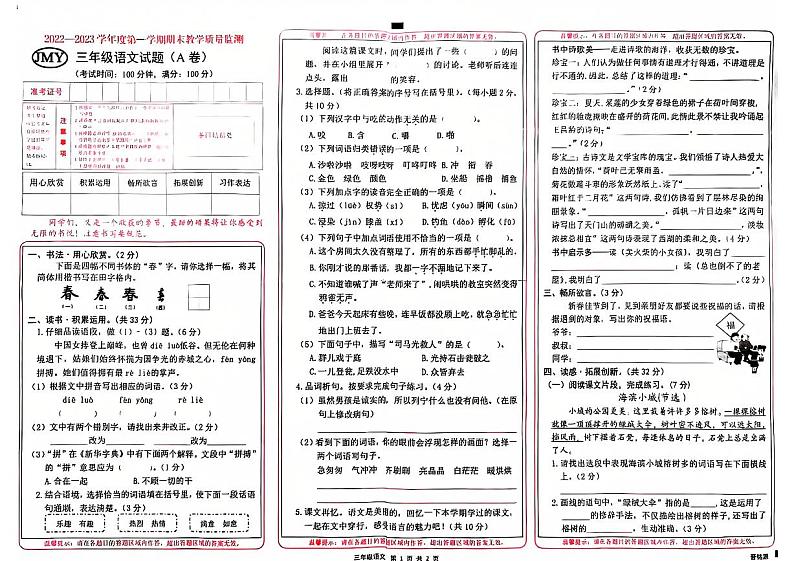 2022—2023学年度第一学期期末教学质量监测
JMY 三年级语文试题（A卷）
（考试时间：100分钟，满分：100分）
准考证号
注意事项
条码粘贴处
用心欣赏 积累运用 畅所欲言 拓展创新 习作表达
同学们，又是一个收获的季节，最甜的硕果将让你感受到
无限的书悦！注意书写要规范。
一、书法·用心欣赏。（2分）
下面是四幅不同书体的“春”字，请你选择一幅，将其
简体用楷体书写在田字格内。
春 春 春 春
（一） （二） （三） （四）
二、读书·积累运用。（共33分）
1.仔细品读语段，做（1）-（3）题。（6分）
中国女排登上巅峰，也曾diē luò低谷。但无论在何种
境遇下，姑娘们始终怀揽为国争光的赤城之心，fèn yǒng
拼搏。她们值得拥有最rè liè的掌声。
（1）根据文中拼音写出相应的词语。（3分）
diē luò fèn yǒng rè liè
（2）文中有两个错别字，请找出来并改正。（2分）
改为 改为
（3）“拼”在《新华字典》中有下面两个解释，文段中“拼搏”
的“拼”意思应为（ ）。（1分）
A.合在一起 B.不顾一切的干
2.结合语境，选择恰当的词语填在括号里，使下面一段话语
句通顺，表达清楚。（3分）
乐趣 有趣 热烈 热情 满意 如意
温馨提示：请在各题目的答题区域内作答，超出答题区域的答案无效。
阅读这篇课文时，同学们提出了（ ）的问
题，并在小组里展开（ ）的讨论。老师听后连连
点头，露出 的笑容。
3.选择题。（将正确答案的序号写在括号里）。（每小题2分，
共10分）
（1）下列汉字中与吃的动作无关的是（ ）。
A.咬 B.含 C.嚼 D.吵
（2）下列词语归类错误的一项是（ ）。
A.沙啦沙啦 吱呀吱呀 叮咚叮咚 B.冲 衔 吞
C.金色 绿色 颜色 D.坐船 捕捎 捕鱼
（3）下列加点字的读音完全正确的一项是（ ）。
（4）下列句子中加点词语使用不恰当的一项是（ ）。
A.这个房间太久没有整理了，所有的东西都手忙脚乱的。
B.你刚才说的那番话，我都一字不漏地记下来了。
C.不知道谁喊了声“老师来了”，闹哄哄的教室突然变得
鸦雀无声。
D.爸爸今天起床有点儿晚，连早餐都没顾上吃，就急急忙忙
地出门上班去了。
（5）下面句子中，描写“司马光救人”的是（ ）。
A.群儿戏于庭 B.光持石击瓮破之
C.一儿登瓮，足跌没水中 D.众皆弃去
4.品词析句。按要求完成句子练习。（4分）
（1）虽然男孩是诚实的，所以列宁什么也没有问他。（在原
句上修改病句）
（2）看到下面的词语，你的眼前会浮现怎样的画面？选择一
两个词语写一写。（3分）
急匆匆 气冲冲 齐刷刷 亮晶晶 白茫茫 暖烘烘
5.课文共忆，语文是美丽的，回忆一下本学期学过的课文，
一起在文中穿行，感受语言的魅力吧！（共10分）
温馨提示：请在各题目的答题区域内作答，超出答题区域的答案无效。
书中诗歌美——走进诗歌的海洋，收获无数的珍宝。
珍宝一：人们认为做任何事情有道理才行得通，不讲道理是
行不通的，由此，总结了这样的道理：“
，”（2分）
珍宝二：夏天，采莲的少女穿着绿色的裙子在荷叶间穿梭，
红红的脸庞掩映在盛开的荷花间，此情此景不禁让我吟诵起
王昌龄的诗句：“ ，
。”（2分）
珍宝三：古诗文是文学宝库的瑰宝。我们领悟了诗人热爱大
自然的情怀，“荷尽已无擎雨盖， 。”，
菊花傲霜斗寒的形象跃然纸上，读了“ ，
霜叶红于二月花”这两句诗，我们仿佛看到了层林尽染的绚
丽景象。“ ，孤帆一片日边来”这两句
诗写出了天门山的磅礴之美。“ ，淡妆
浓抹总相宜”这两句诗表现了西湖的柔和之美。（4分）
书中启示多——读《卖火柴的小女孩》，我明白了
；读《总也倒不了的老
屋》，我明白了 。（2分）
三、畅所欲言。（3分）
新春佳节到了，见到亲朋好友都要说些祝福的话，请根
据遇到的对象，写出你的祝福语。
爷爷：
叔叔：
同学：
福
四、读感·拓展创新。（共32分）
（一）阅读课文片段，完成练习。（7分）
海滨小城（节选）
小城的公园更美。这里栽着许许多多榕树，一棵棵榕树
就像一顶顶撑开的绿绒大伞，树叶密不透风，可以遮太阳，
挡风雨。树下摆着石凳，每逢休息的日子，石凳上总是坐满
了人。
1.请找出选段中表现海滨小城榕树多的词语写在下面横线
上。（2分）
2.画线的语句中，“绿绒大伞”指的是 ，这是运用了
的修辞手法，不仅形象地描绘出榕树的样子，还写出了
榕树 ，生动准确。（3分）
温馨提示：请在各题目的答题区域内作答，超出答题区域的答案无效。
三年级语文 第 1 页 共 2 页